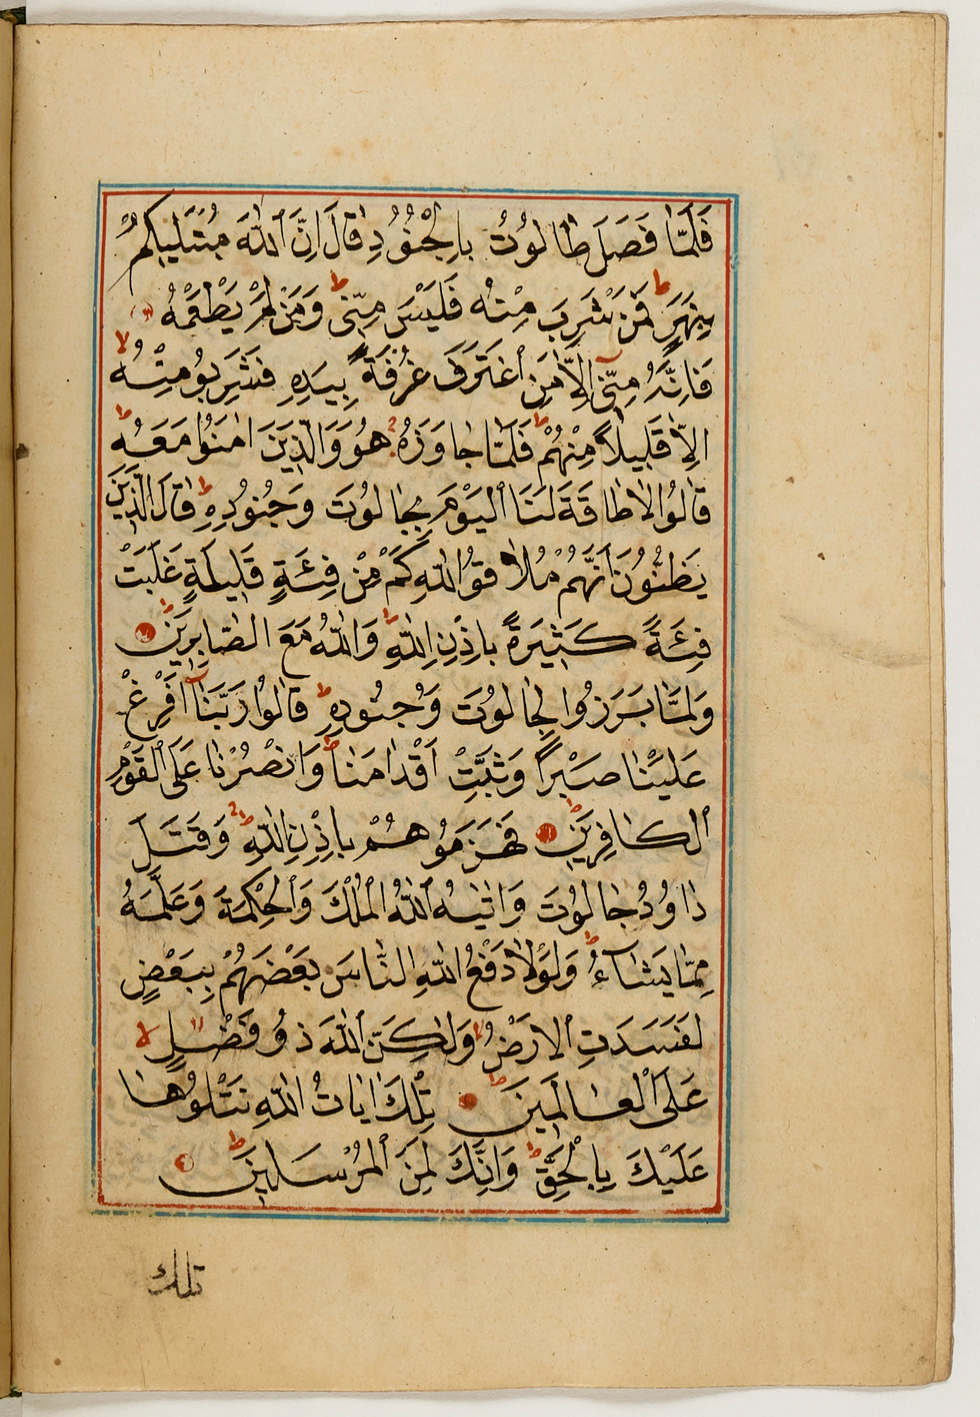 فَلَمَّا فَصَلَ طَالُوتُ بِالْجُنُودِ قَالَ اِنَّ اللّٰهَ مُبْتَلِيكُمْ
بِنَهَرٍ ط فَمَنْ شَرِبَ مِنْهُ فَلَيْسَ مِنِّي ط وَمَنْ لَمْ يَطْعَمْهُ
فَاِنَّهُ مِنِّي اِلَّا مَنِ اغْتَرَفَ غُرْفَةً بِيَدِهِ فَشَرِبُو مِنْهُ لا
اِلَّا قَلِيلًا مِنْهُمْ ط فَلَمَّا جَاوَزَهُ هُوَ وَالَّذِينَ اٰمَنُوا مَعَهُ ط
قَالُوا لَا طَاقَةَ لَنَا الْيَوْمَ بِجَالُوتَ وَجُنُودِهِ ط قَالَ الَّذِينَ
يَظُنُّونَ اَنَّهُمْ مُلَاقُو اللّٰهِ كَمْ مِنْ فِئَةٍ قَلِيلَةٍ غَلَبَتْ
فِئَةً كَثِيرَةً بِاِذْنِ اللّٰهِ ط وَاللّٰهُ مَعَ الصَّابِرِينَ ط
وَلَمَّا بَرَزُوا لِجَالُوتَ وَجُنُودِهِ ط قَالُوا رَبَّنَا اَفْرِغْ
عَلَيْنَا صَبْرًا وَثَبِّتْ اَقْدَامَنَا ط وَانْصُرْنَا عَلَى الْقَوْمِ
الْكَافِرِينَ ط فَهَزَمُوهُمْ بِاِذْنِ اللّٰهِ ط وَقَتَلَ
دَاوُدُ جَالُوتَ وَاٰتٰيهُ اللّٰهُ الْمُلْكَ وَالْحِكْمَةَ وَعَلَّمَهُ
مِمَّا يَشَاءُ ط وَلَوْلَا دَفْعُ اللّٰهِ النَّاسَ بَعْضَهُمْ بِبَعْضٍ
لَفَسَدَتِ الْاَرْضُ لا وَلٰكِنَّ اللّٰهَ ذُو فَضْلٍ لا
عَلَى الْعَالَمِينَ ط تِلْكَ اٰيَاتُ اللّٰهِ نَتْلُوهَا
عَلَيْكَ بِالْحَقِّ ط وَاِنَّكَ لَمِنَ الْمُرْسَلِينَ ط
تلك